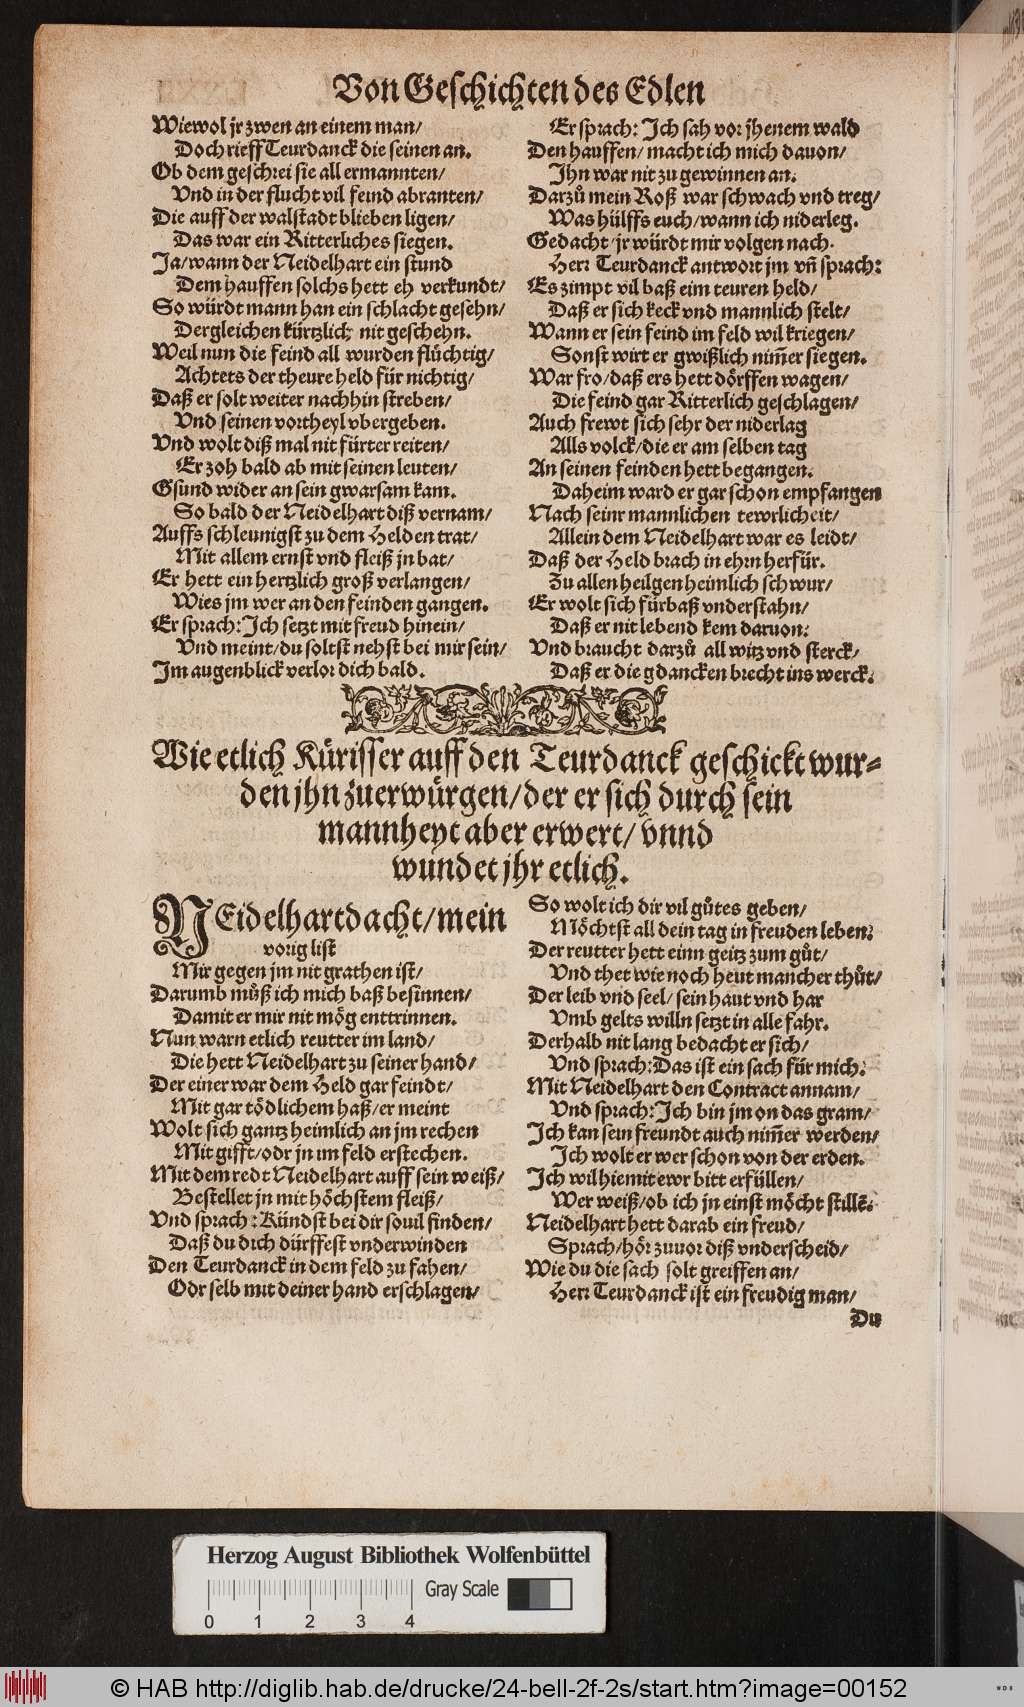 Von Geschichten des Edlen
Wiewol jr zwen an einem man/
Doch rieff Teurdanck die seinen an.
Ob dem geschrei sie all ermannten/
Vnd in der flucht vil feind abranten/
Die auff der walstadt blieben ligen/
Das war ein Ritterliches siegen.
Ja/wann der Neidelhart ein stund
Dem hauffen solchs hett eh verkundt/
So würdt mann han ein schlacht gesehn/
Dergleichen kürtzlich nit geschehn.
Weil nun die feind all wurden flüchtig/
Achtets der theure held für nichtig/
Daß er solt weiter nachhin streben/
Vnd seinen vortheyl vbergeben.
Vnd wolt diß mal nit fürter reiten/
Er zoh bald ab mit seinen leuten/
Gsund wider an sein gwarsam kam.
So bald der Neidelhart diß vernam/
Auffs schleunigst zu dem Helden trat/
Mit allem ernst vnd fleiß jn bat/
Er hett ein hertzlich groß verlangen/
Wies jm wer an den feinden gangen.
Er sprach: Ich setzt mit freud hinein/
Vnd meint/du soltst nehst bei mir sein/
Im augenblick verlor dich bald.
Er sprach: Ich sah vor jhenem wald
Den hauffen/ macht ich mich dauon/
Ihn war nit zu gewinnen an.
Darzů mein Roß war schwach vnd treg/
Was hülffs euch/wann ich niderleg.
Gedacht/jr würdt mir volgen nach.
Herr Teurdanck antwort jm vñ sprach:
Es zimpt vil baß eim teuren held/
Daß er sich keck vnd mannlich stelt/
Wann er sein feind im feld wil kriegen/
Sonst wirt er gwißlich nim̃er siegen.
War fro/daß ers hett dörffen wagen/
Die feind gar Ritterlich geschlagen/
Auch frewt sich sehr der niderlag
Alls volck/die er am selben tag
An seinen feinden hett begangen.
Daheim ward er gar schon empfangen
Nach seinr mannlichen tewrlicheit/
Allein dem Neidelhart war es leidt/
Daß der Held brach in ehrn herfür.
Zu allen heilgen heimlich schwur/
Er wolt sich fürbaß vnderstahn/
Daß er nit lebend kem daruon:
Vnd braucht darzů all witz vnd sterck/
Daß er die gdancken brecht ins werck.
Wie etlich Kürisser auff den Teurdanck geschickt wur-
den jhn zuerwürgen/der er sich durch sein
mannheyt aber erwert/ vnnd
wundet jhr etlich.
NEidelhart dacht/mein
vorig list
Mir gegen jm nit grathen ist/
Darumb můß ich mich baß besinnen/
Damit er mir nit mög enttrinnen.
Nun warn etlich reutter im land/
Die hett Neidelhart zu seiner hand/
Der einer war dem Held gar feindt/
Mit gar tödlichem haß/er meint
Wolt sich gantz heimlich an jm rechen
Mit gifft/odr jn im feld erstechen.
Mit dem redt Neidelhart auff sein weiß/
Bestellet jn mit höchstem fleiß/
Vnd sprach: Kündst bei dir souil finden/
Daß du dich dürffest vnderwinden
Den Teurdanck in dem feld zu fahen/
Odr selb mit deiner hand erschlagen/
So wolt ich dir vil gůtes geben/
Möchtst all dein tag in freuden leben.
Der reutter hett einn geitz zum gůt/
Vnd thet wie noch heut mancher thůt/
Der leib vnd seel/ sein haut vnd har
Vmb gelts willn setzt in alle fahr.
Derhalb nit lang bedacht er sich/
Vnd sprach: Das ist ein sach für mich.
Mit Neidelhart den Contract annam/
Vnd sprach: Ich bin jm on das gram/
Ich kan sein freundt auch nim̃er werden/
Ich wolt er wer schon von der erden.
Ich wil hiemit ewr bitt erfüllen/
Wer weiß/ob ich jn einst möcht stillẽ.
Neidelhart hett darab ein freud/
Sprach/hör zuuor diß vnderscheid/
Wie du die sach solt greiffen an/
Herr Teurdanck ist ein freudig man/
Du
Herzog August Bibliothek Wolfenbüttel
Gray Scale
0 1 2 3 4
© HAB http://diglib.hab.de/drucke/24-bell-2f-2s/start.htm?image=00152